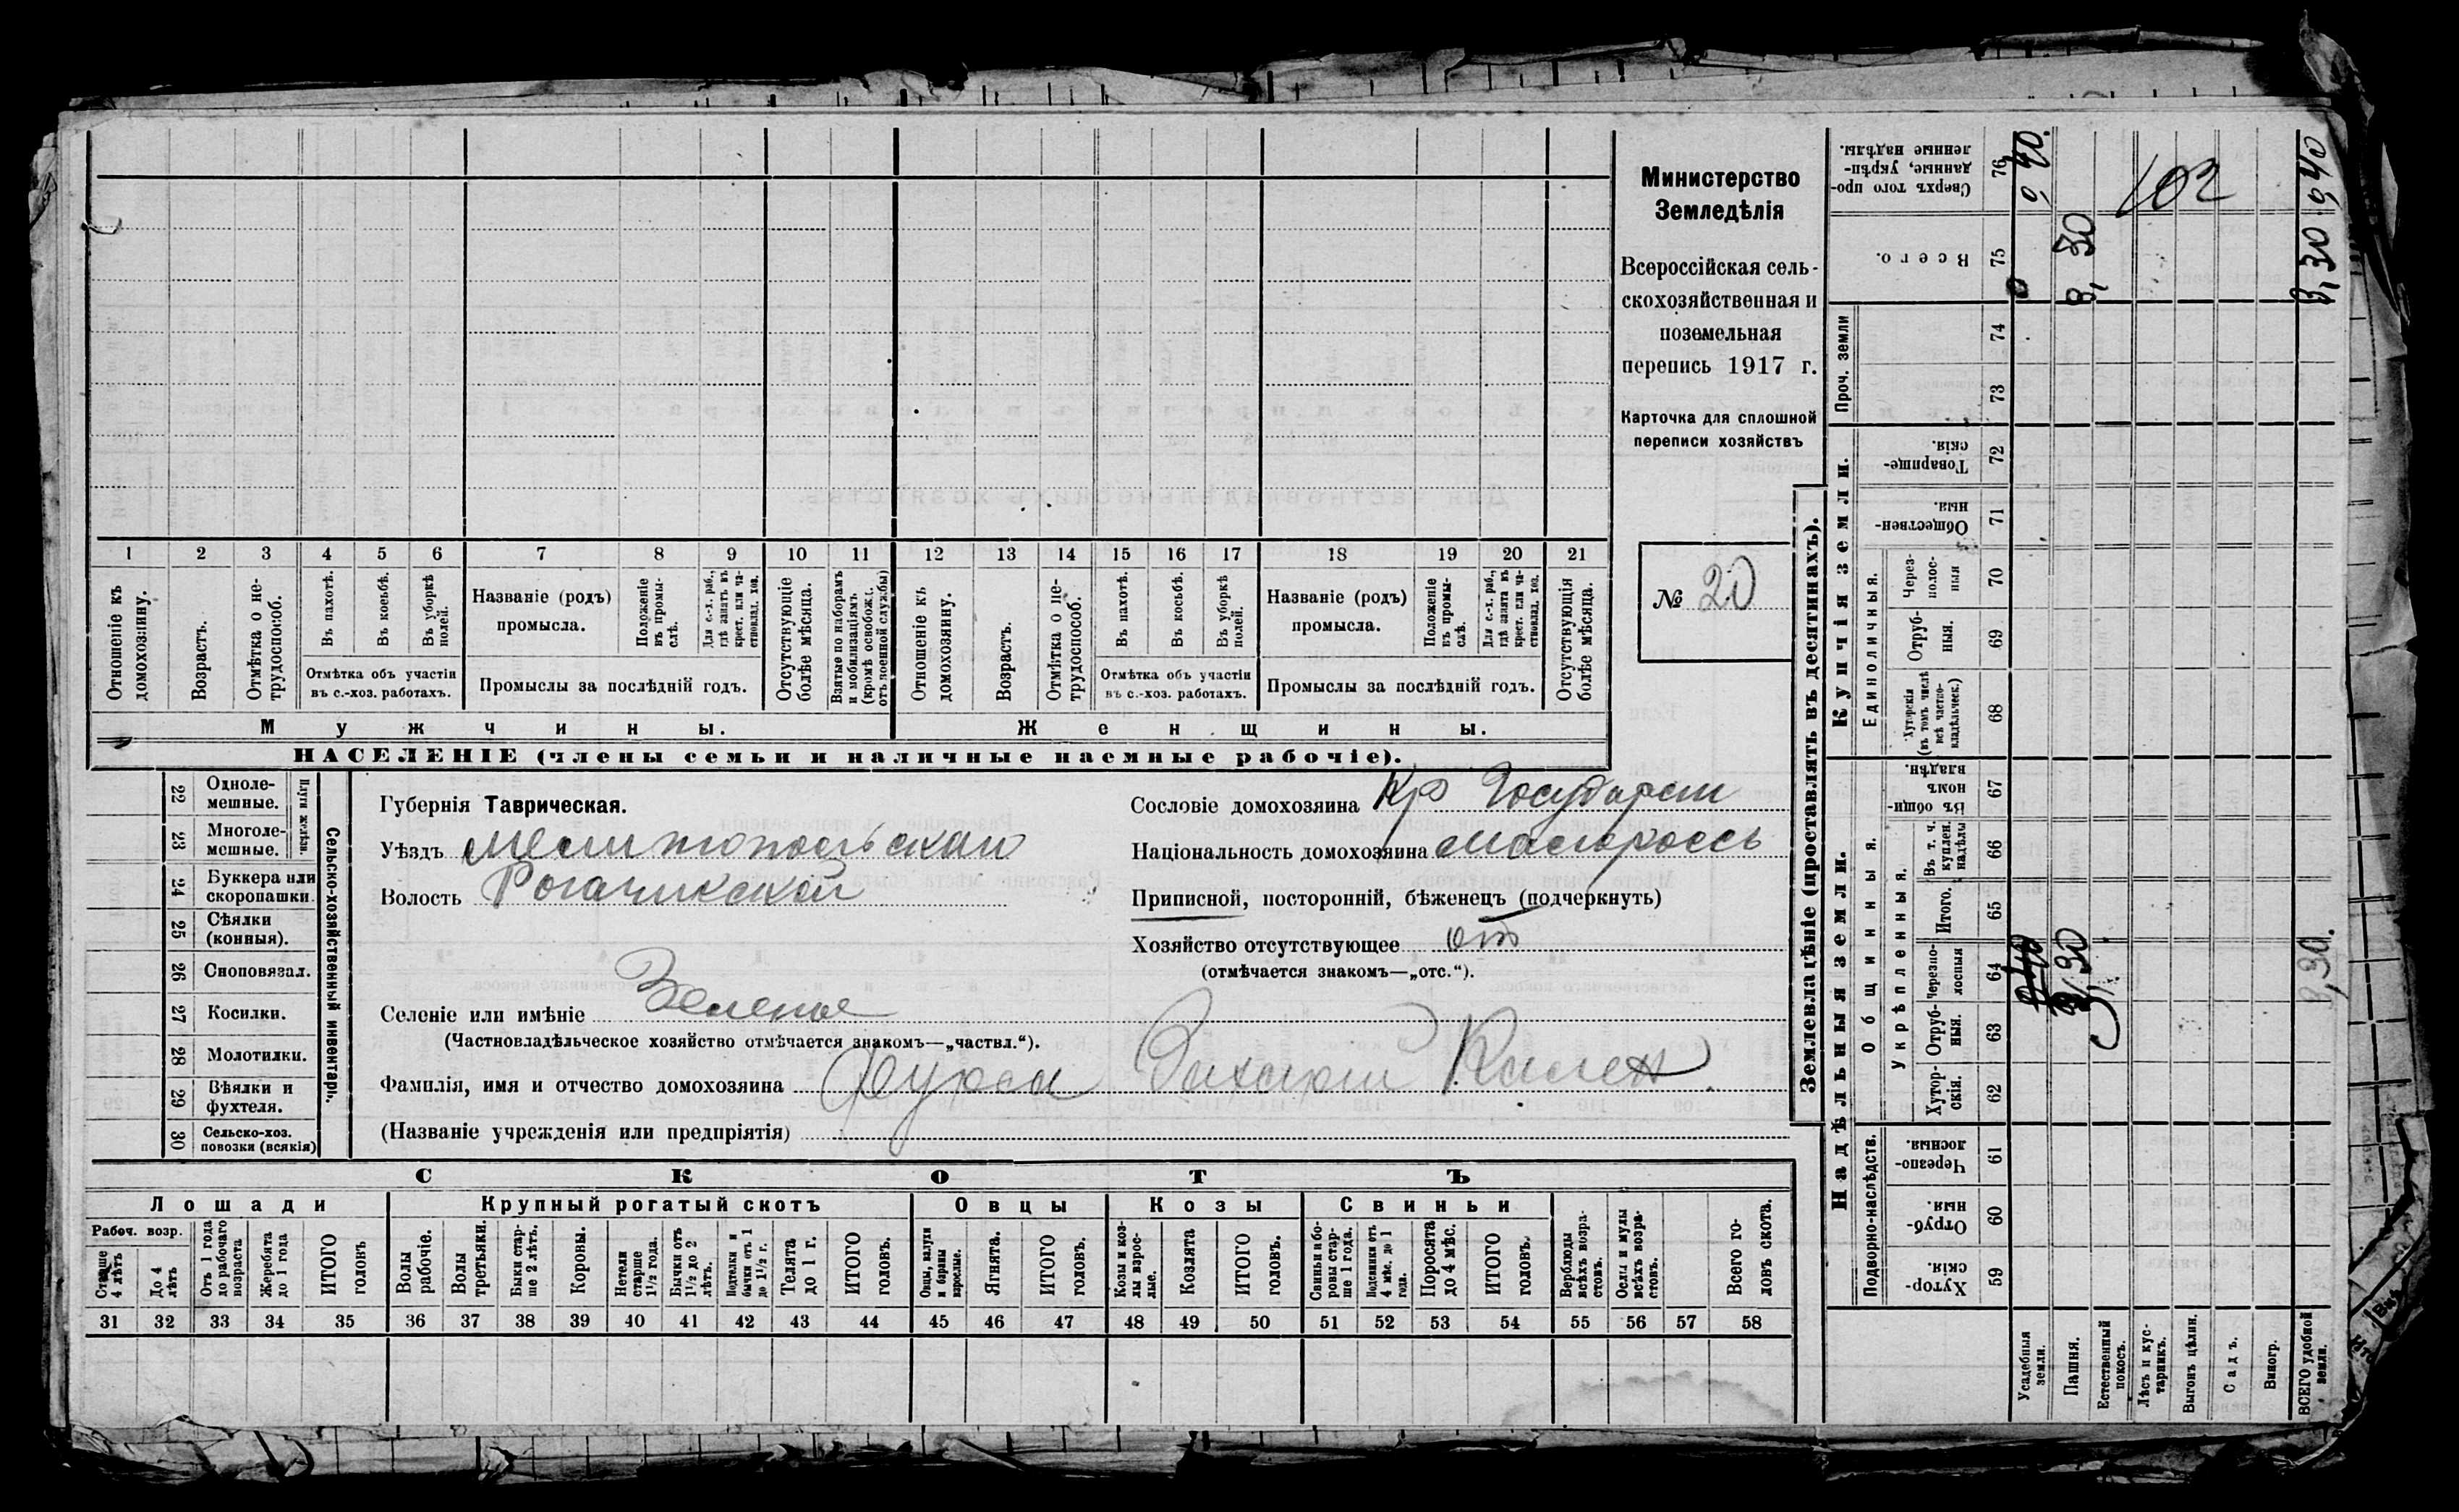 1 2 3 4 5 6 7 8 9 10 11 12 13 14 15 16 17 18 19 20 21
Отношеніе къ домохозяину.
Возрастъ.
Отмѣтка о не-
трудоспособ.
Въ пахотѣ.
Въ косьбѣ.
Въ уборкѣ
полей.
Отмѣтка объ участіи
въ с.-хоз. работахъ.
Названіе (родъ)
промысла.
Положеніе
въ промы-
слѣ.
Для с.-х. раб.,
гдѣ занятъ въ
крест. или ча-
стновлад. хоз.
Промыслы за послѣдній годъ.
Отсутствующіе
болѣе мѣсяца.
Взятые по наборамъ
и мобилизаціямъ
(кромѣ освобожд.
отъ военной службы)
Отношеніе къ
домохозяину.
Возрастъ.
Отмѣтка о не-
трудоспособ.
Въ пахотѣ.
Въ косьбѣ.
Въ уборкѣ
полей.
Отмѣтка объ участіи
въ с.-хоз. работахъ.
Названіе (родъ)
промысла.
Положеніе
въ промы-
слѣ.
Для с.-х. раб.,
гдѣ занята въ
крест. или ча-
стновлад. хоз.
Промыслы за послѣдній годъ.
Отсутствующія
болѣе мѣсяца.
Мужчины.
Женщины.
НАСЕЛЕНІЕ (члены семьи и наличные наемные рабочіе).
Министерство
Земледѣлія
Всероссійская сель-
скохозяйственная и
поземельная
перепись 1917 г.
Карточка для сплошной
переписи хозяйствъ
№ 20
22 Одноле-
мешные.
23 Многоле-
мешные.
Плуги желѣзн.
24 Буккера или
скоропашки
25 Сѣялки
(конныя).
26 Сноповязал.
27 Косилки.
28 Молотилки.
29 Вѣялки и
фухтеля.
30 Сельско-хоз.
повозки (всякія)
Сельско-хозяйственный инвентарь.
Губернія Таврическая.
Уѣздъ Мелитопольскаи
Волость Рогачикской
Селеніе или имѣніе Зеленое
(Частновладѣльческое хозяйство отмѣчается знакомъ—„частвл.“).
Фамилія, имя и отчество домохозяина
(Названіе учрежденія или предпріятія)
Сословіе домохозяина Кр Государст
Національность домохозяина малороссъ
Приписной, посторонній, бѣженецъ (подчеркнуть)
Хозяйство отсутствующее
(отмѣчается знакомъ—„отс.“).
СКОТЪ
Лошади
Крупный рогатый скотъ
Овцы
Козы
Свиньи
Рабоч. возр.
Старше
4 лѣтъ
До 4
лѣтъ
Отъ 1 года
до рабочаго
возраста
Жеребята
до 1 года
ИТОГО
головъ
Волы
рабочіе.
Волы
третьяки.
Быки стар-
ше 2 лѣтъ.
Коровы.
Нетели
старше
1½ года.
Бычки отъ
1½ до 2
лѣтъ.
Подтелки и
бычки отъ 1
до 1½ г.
Телята
до 1 г.
ИТОГО
головъ.
Овцы, валухи
и бараны
взрослые.
Ягнята.
ИТОГО
головъ.
Козы и коз-
лы взрос-
лые.
Козлята
ИТОГО
головъ.
Свиньи и бо-
ровы стар-
ше 1 года.
Подсвинки отъ
4 мѣс. до 1
года.
Поросята
до 4 мѣс.
ИТОГО
головъ.
Верблюды
всѣхъ возра-
стовъ.
Ослы и мулы
всѣхъ возра-
стовъ.
Всего го-
ловъ скота.
31 32 33 34 35 36 37 38 39 40 41 42 43 44 45 46 47 48 49 50 51 52 53 54 55 56 57 58
Землевладѣніе (проставлять въ десятинахъ).
Надѣльныя земли.
Купчія земли.
Проч. земли
Подворно-наслѣдств.
Общинныя.
Укрѣпленныя.
Единоличныя.
Сверхъ того про-
данные, укрѣп-
ленные надѣлы.
76
0 40.
102
3,30 0,40
Всего.
75
0
3,30
74
73
Товарище-
скія.
72
Обществен-
ныя.
71
Через-
полос-
ныя
70
Отруб-
ныя.
69
Хуторскія
(въ томъ числѣ
всѣ частно-
владѣльческ.)
68
Въ общин-
номъ
владѣн.
67
Въ т. ч.
куплен.
надѣлы
66
Итого.
65
Черезпо-
лосныя
64
0 40
3,30
3,30.
Отруб-
ныя.
63
Хутор-
скія.
62
Черезпо-
лосныя.
61
Отруб-
ныя.
60
Хутор-
скія.
59
Усадебныя
земли.
Пашня.
Естественный
покосъ.
Лѣсъ и кус-
тарникъ.
Выгонъ цѣлин.
Садъ.
Виногр.
ВСЕГО удобной
земли.